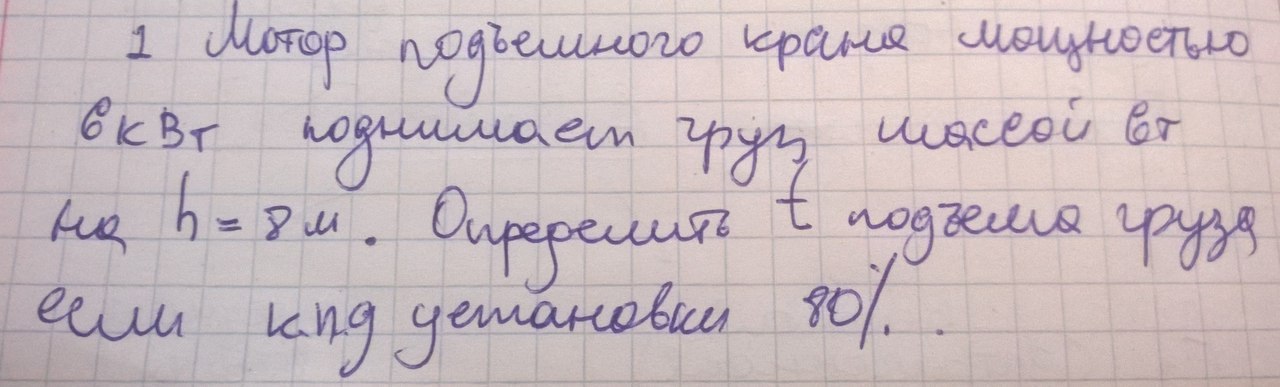 1 Мотор подъемного крана мощностью
6 кВт поднимает груз массой 6т
на h = 8 м. Определить t подъема груза
если к.п.д установки 80%.